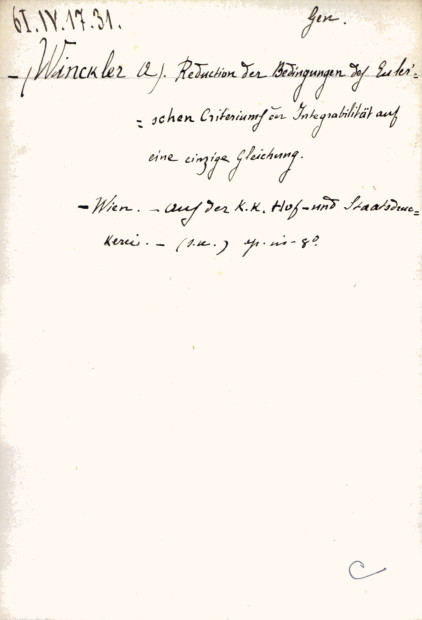 61.IV.17.31.
Gen.
– (Winckler A). Reduction der Bedingungen des Euler'=
= schen Criteriums der Integrabilität auf
eine einzige Gleichung.
– Wien. – auf der K.K. Hof – und Staatsdruc=
kerei. – (s.a.) op. in – 8º.
C